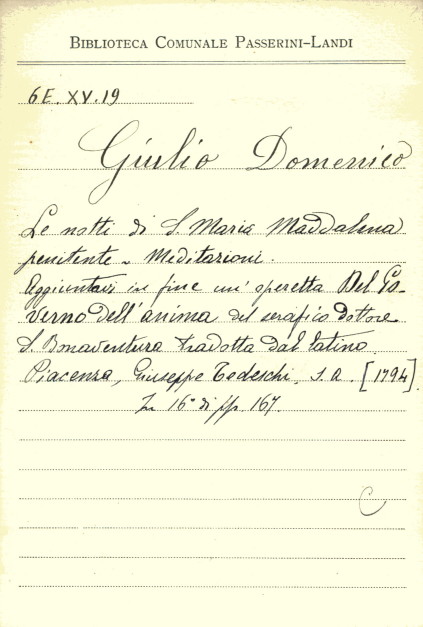 BIBLIOTECA COMUNALE PASSERINI-LANDI
6E. XV. 19
Giulio Domenico
Le notti di S. Maria Maddalena
penitente - Meditazioni.
Aggiuntavi in fine un' operetta Del Go-
verno dell'anima del serafico Dottore
S. Bonaventura tradotta dal latino
Piacenza, Giuseppe Tedeschi, s.a. [1794]
In 16° di pp. 167.
C